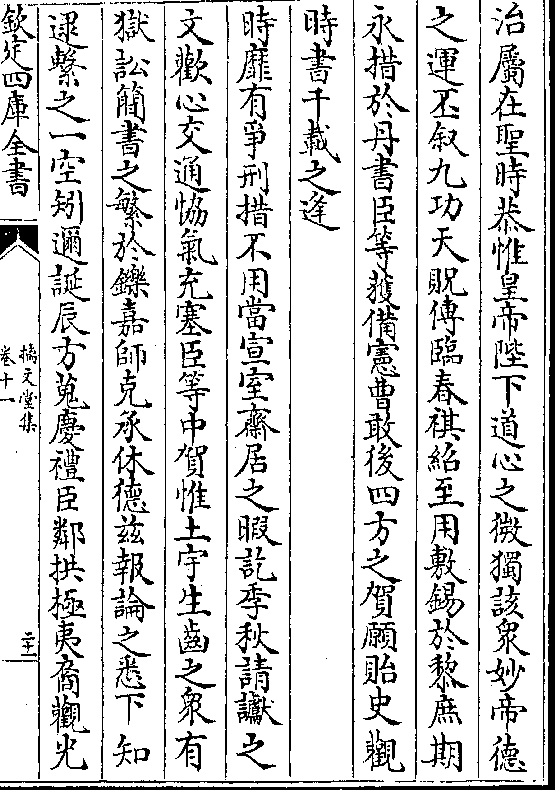 治屬在聖時恭惟皇帝陛下道心之微獨該衆妙帝德
之運丕叙九功天貺傳臨春祺紹至用敷錫於黎庶期
永措於丹書臣等獲備憲曹敢後四方之賀願貽史觀
時書千載之逢
時靡有爭刑措不用當宣室齋居之暇訖季秋請讞之
文歡心交通恊氣充塞臣等中賀惟土宇生齒之衆有
獄訟簡書之繁於鑠嘉師克承休德兹報論之悉下知
逮繫之一空矧邇誕辰方蒐慶禮臣鄰拱極夷裔觀光
欽定四庫全書
摛文堂集
卷十一
二十一